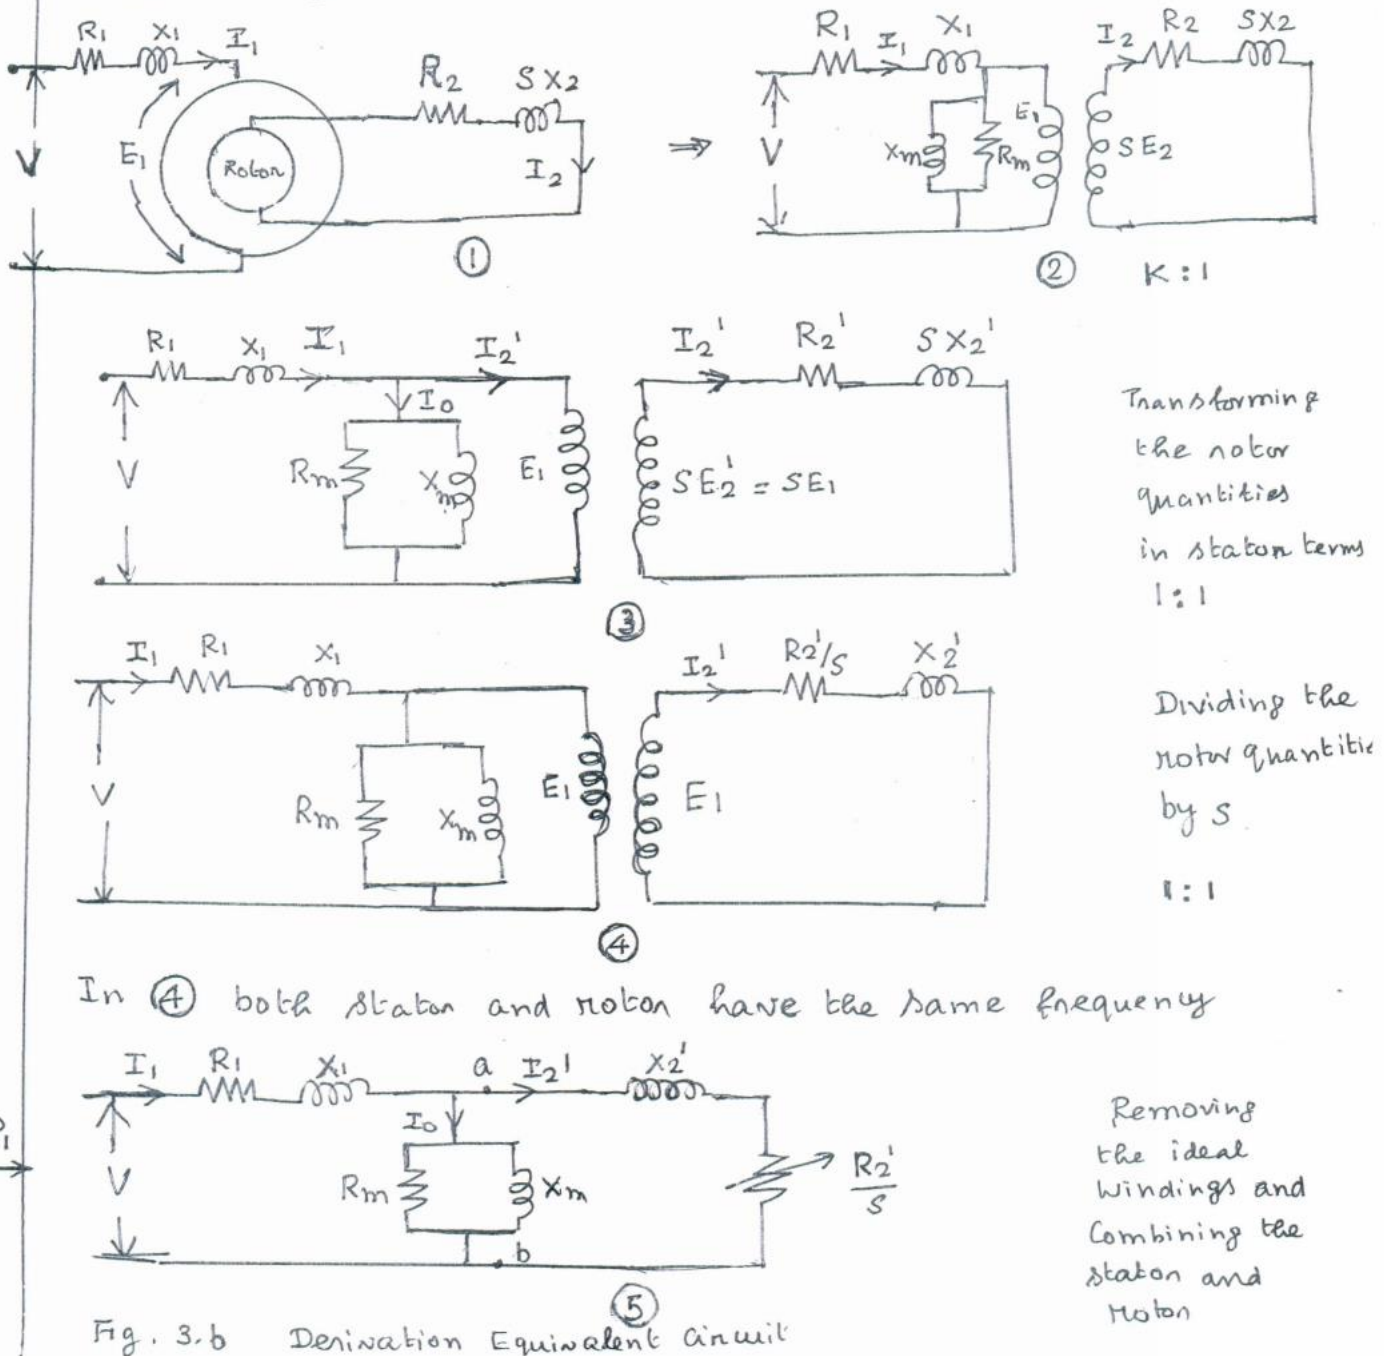 R1 X1 I1
R2 SX2
V E1 Rotor I2
①
⇒
R1 I1 X1 I2 R2 SX2
V Xm Rm E1 SE2
② K : 1
R1 X1 I1 I2' I2' R2' SX2'
I0
V Rm Xm E1 SE2' = SE1
Transforming
the rotor
quantities
in stator terms
1 : 1
③
I1 R1 X1 I2' R2'/S X2'
V Rm Xm E1 E1
Dividing the
rotor quantitie
by S
1 : 1
④
In ④ both stator and rotor have the same frequency
I1 R1 X1 a I2' X2'
I0
V Rm Xm R2'/S
b
Removing
the ideal
windings and
Combining the
stator and
rotor
⑤
Fig. 3.b Derivation Equivalent Circuit